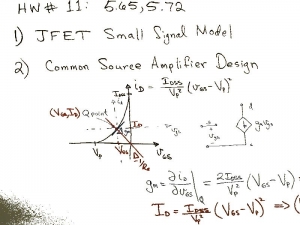 HW# 11: 5.65, 5.72
1) JFET Small Signal Model
2) Common Source Amplifier Design
I_DSS
i_D = I_DSS/V_P² (v_GS - V_P)²
(V_GS, I_D) Q point
I_D
V_P V_GS v_GS
g_m = ∂i_D/∂v_GS |_Q = 2I_DSS/V_P² (V_GS - V_P)
I_D = I_DSS/V_P² (V_GS - V_P)² ⇒ (